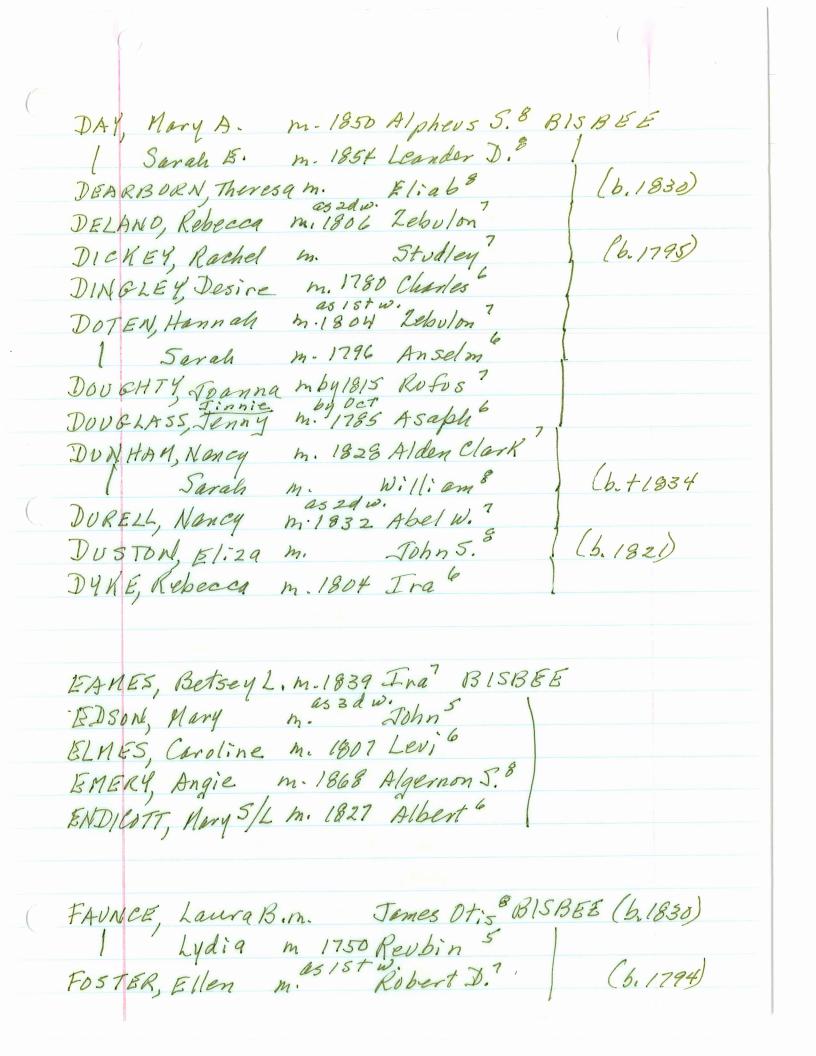 DAY, Mary A. m. 1850 Alpheus S.⁸ BISBEE
Sarah E. m. 1854 Leander D.⁸
DEARBORN, Theresa m. Eliab⁸ (b. 1830)
as 2d w.
DELANO, Rebecca m. 1806 Zebulon⁷
DICKEY, Rachel m. Studley⁷ (b. 1795)
DINGLEY, Desire m. 1780 Charles⁶
as 1st w.
DOTEN, Hannah m. 1804 Zebulon⁷
Sarah m. 1796 Anselm⁶
DOUGHTY, Joanna m by 1815 Rufus⁷
Jinnie by Oct
DOUGLASS, Jenny m. 1785 Asaph⁶
DUNHAM, Nancy m. 1828 Alden Clark⁷
Sarah m. William⁸ (b. +1834
as 2d w.
DURELL, Nancy m. 1832 Abel W.⁷
DUSTON, Eliza m. John S.⁸ (b. 1821)
DYKE, Rebecca m. 1804 Ira⁶
EAMES, Betsey L. m. 1839 Ira⁷ BISBEE
as 3d w.
EDSON, Mary m. John⁵
ELMES, Caroline m. 1807 Levi⁶
EMERY, Angie m. 1868 Algernon S.⁸
ENDICOTT, Mary S/L m. 1827 Albert⁶
FAUNCE, Laura B. m. James Otis⁸ BISBEE (b. 1830)
Lydia m 1750 Reubin⁵
as 1st w.
FOSTER, Ellen m. Robert D.⁷ (b. 1794)